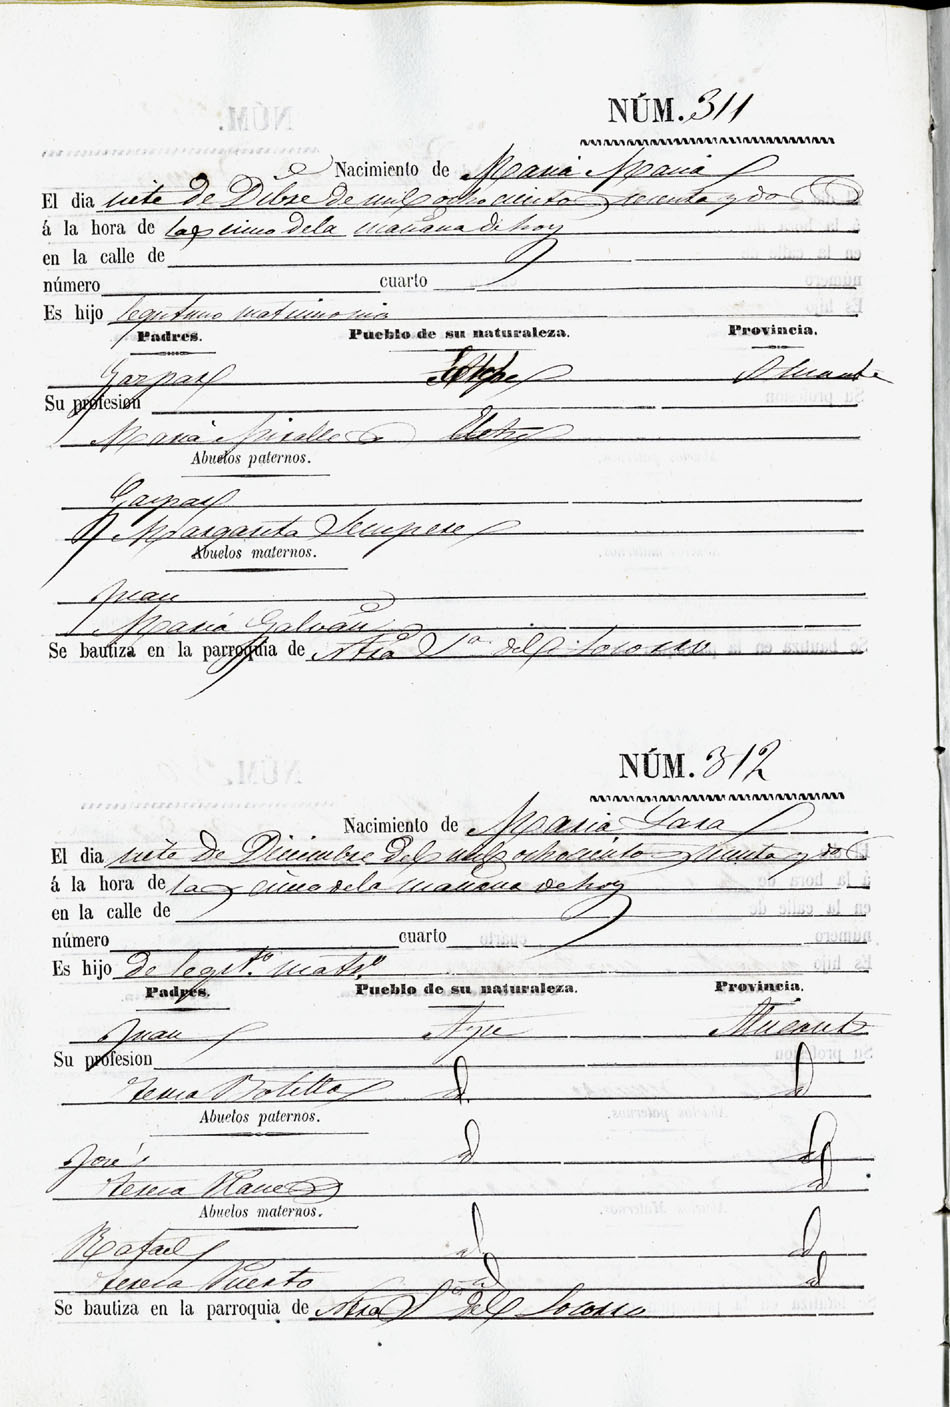 NÚM. 311
Nacimiento de Maria Maria
El dia siete de Dibre de mil ochocientos sesenta y dos
á la hora de las cinco de la mañana de hoy
en la calle de
número cuarto
Es hijo legitimo matrimonio
Padres. Pueblo de su naturaleza. Provincia.
Gaspar Alicante
Su profesion
Maria Miralles Elche
Abuelos paternos.
Gaspar
Margarita Sempere
Abuelos maternos.
Juan
Maria Galvañ
Se bautiza en la parroquia de Ntra Sra del Socorro
NÚM. 312
Nacimiento de Maria Lara
El dia siete de Diciembre del mil ochociento senenta y dos
á la hora de las cinco de la mañana de hoy
en la calle de
número cuarto
Es hijo de legit.º matr.º
Padres. Pueblo de su naturaleza. Provincia.
Juan Alicante
Su profesion
Teresa Botella id id
Abuelos paternos.
José id id
Teresa id
Abuelos maternos.
Rafael id id
Teresa Puerto id id
Se bautiza en la parroquia de Ntra Sra del Socorro